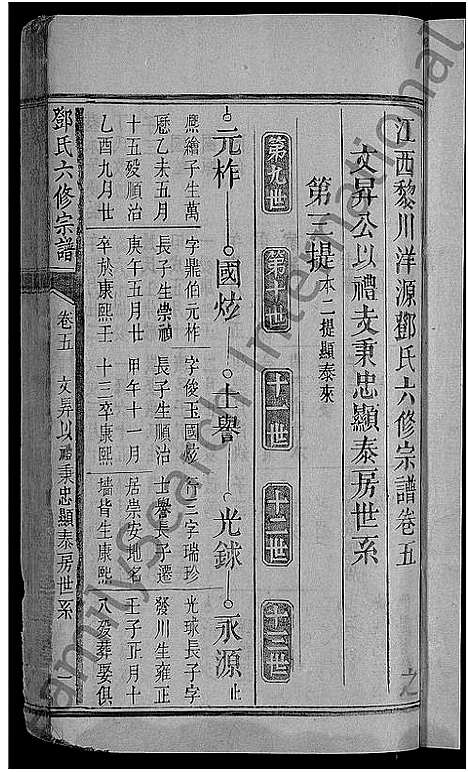 江西黎川洋源鄧氏六修宗譜卷五
文昇公以禮支秉忠顯泰房世系
第三提本二提顯泰來
第九世
第十世
十一世
十二世
十三世
元柞
國炫
士譽
光銶
永源止
應繪子生萬
歷乙未五月
十五殁順治
乙酉九月廿
字鼎伯元柞
長子生崇禎
庚午五月廿
卒於康熙壬
字俊玉國炫
長子生順治
甲午十一月
十三卒康熙
行三字瑞珍
士譽長子遷
居崇安地名
墻皆生康熙
光球長子字
發川生雍正
壬子正月十
八殁葬娶俱
鄧氏六修宗譜
卷五
文昇以禮秉忠顯泰房世系
一
FamilySearch International